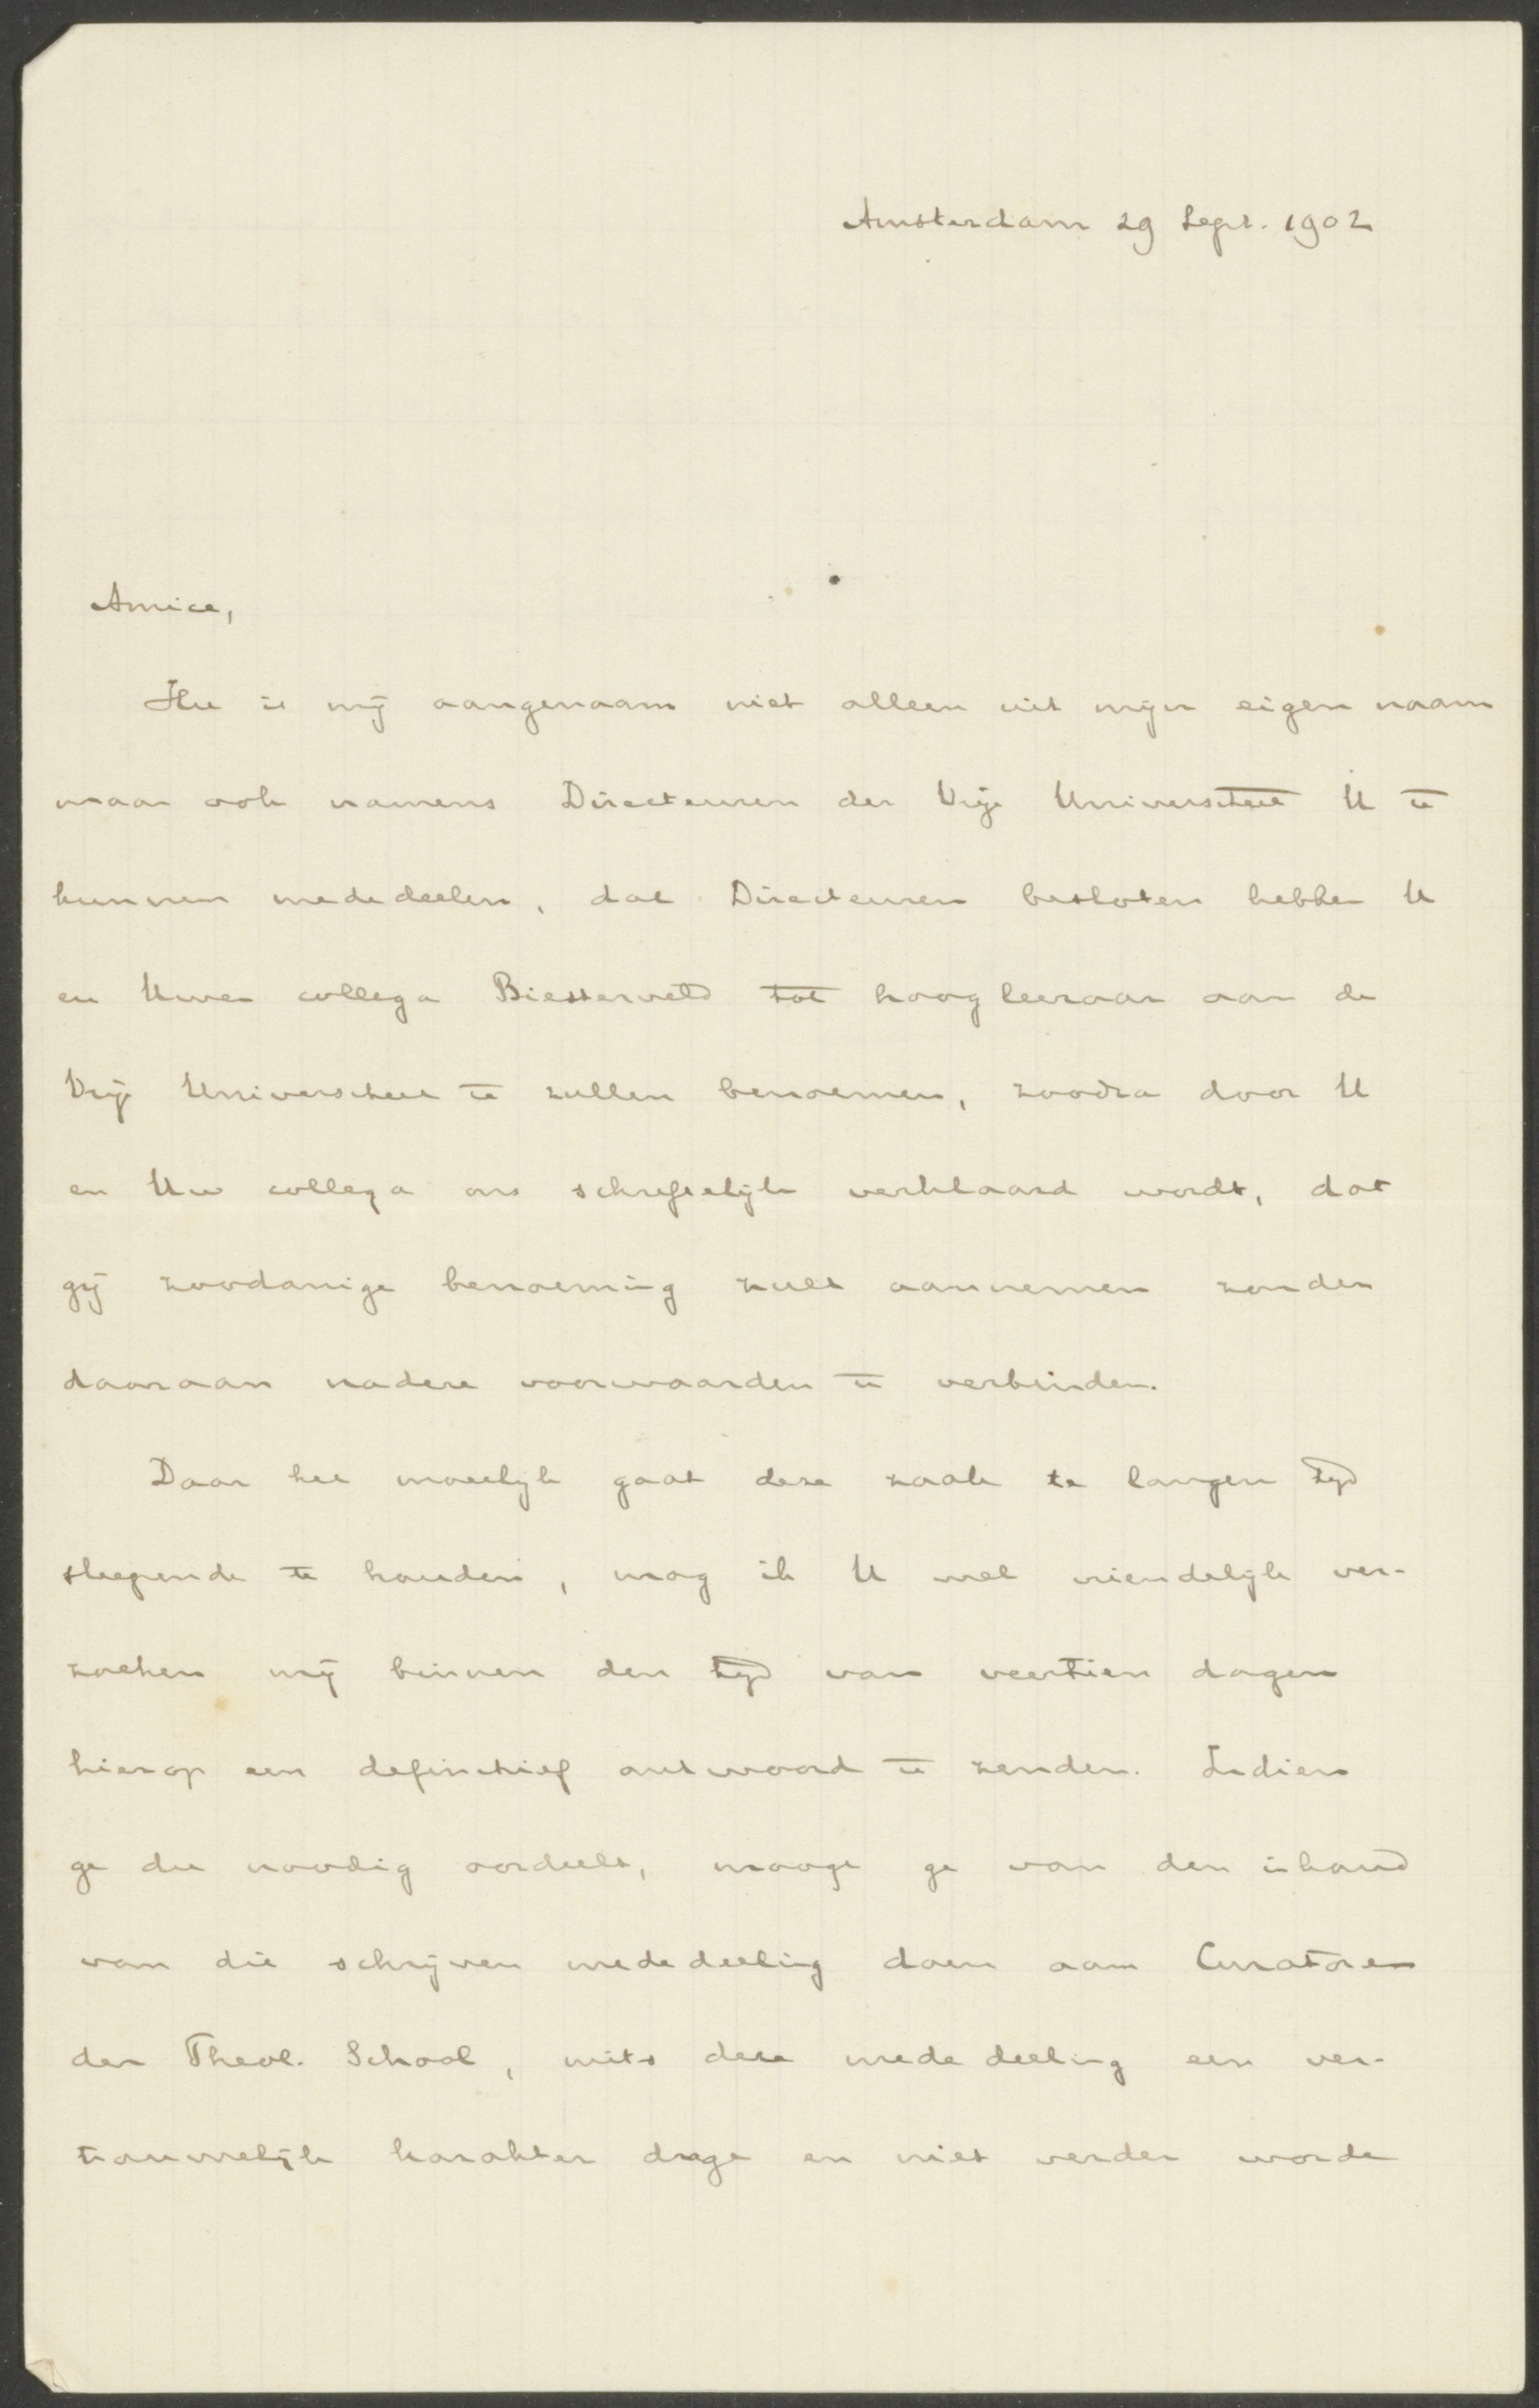 Amsterdam 29 Sept. 1902
Amice,
Het is mij aangenaam niet alleen uit mijn eigen naam
maar ook namens Directeuren der Vrije Universiteit U te
kunnen mededeelen, dat Directeuren besloten hebben U
en Uwen collega Biesterveld tot hoogleeraar aan de
Vrije Universiteit te zullen benoemen, zoodra door U
en Uw collega ons schriftelijk verklaard wordt, dat
gij zoodanige benoeming zult aannemen zonder
daaraan nadere voorwaarden te verbinden.
Daar het moeielijk gaat deze zaak te langen tijd
sleepende te houden, mag ik U wel vriendelijk ver-
zoeken mij binnen den tijd van veertien dagen
hierop een definitief antwoord te zenden. Indien
ge dit noodig oordeelt, moogt ge van den inhoud
van dit schrijven mededeeling doen aan Curatoren
der Theol. School, mits deze mededeeling een ver-
trouwelijk karakter drage en niet verder worde